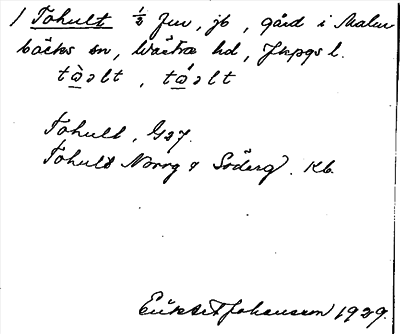 1 Tohult ½ fm, jb, gård i Malm
bäcks sn, Västra hd, Jkpgs l.
tò̱ɔlt, tó̱ɔlt
Tohult, G27.
Tohult Norrg & Söderg. Kb.
Johansson 1929.